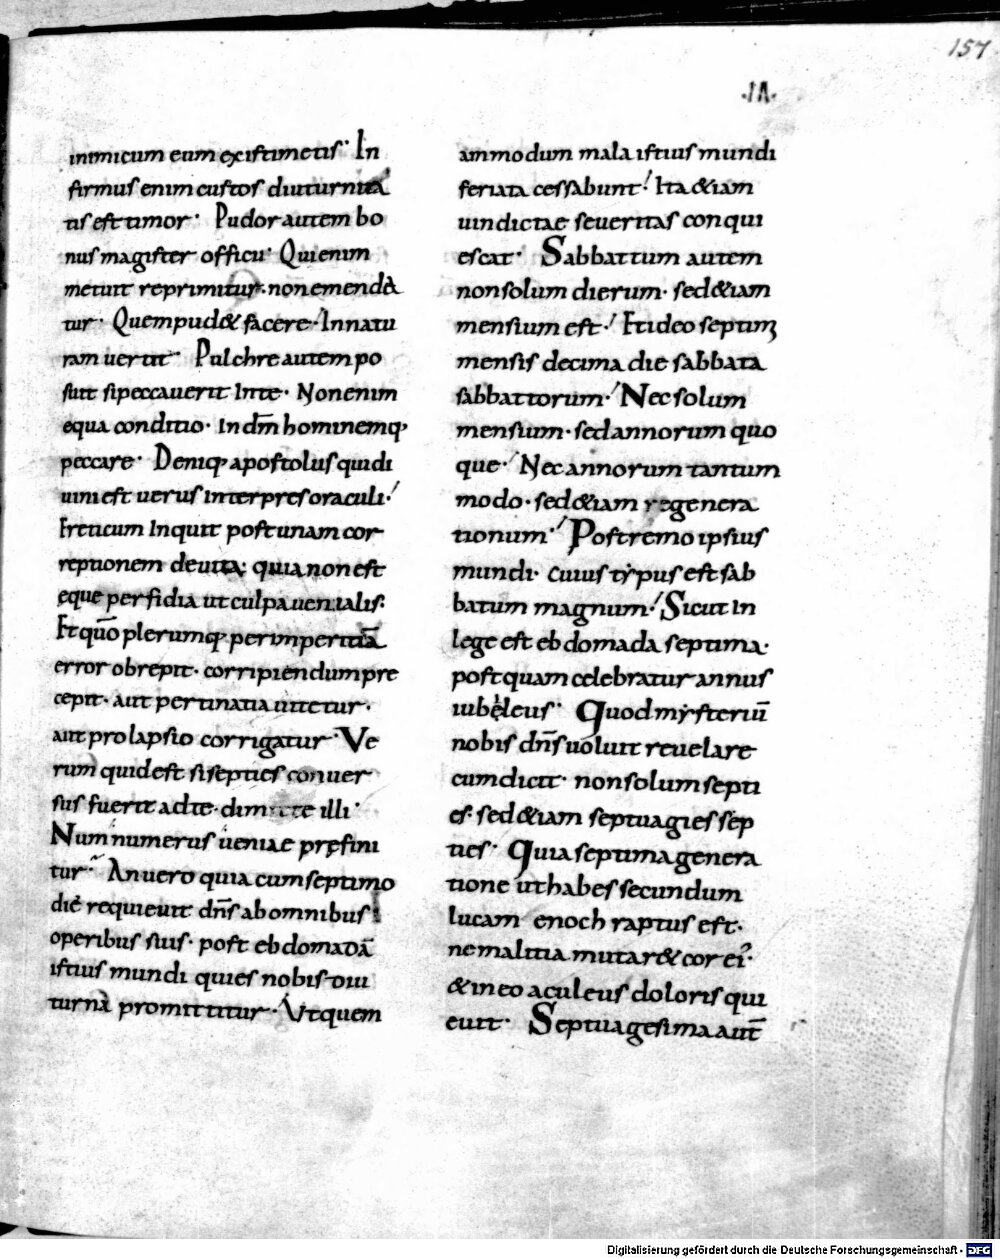 157
·IA·
inimicum eum existimetis· In
firmus enim custos diuturnita
tis est timor· Pudor autem bo
nus magister officii· Qui enim
metuit reprimitur· non emendā
tur· Quem pud& facere· In natu
ram uertit· Pulchre autem po
suit si peccauerit in te· Non enim
equa conditio· In dm̄ hominemq;
peccare· Deniq; apostolus qui di
uini est uerus interpres oraculi·
Ereticum inquit post unam cor
reptionem deuita· quia non est
eque perfidia ut culpa uenialis·
Et quō plerumq; per imperitiā
error obrepit· corripiendum pre
cepit· aut pertinatia uitetur·
aut prolapsio corrigatur· Ve
rum quid est si septies conuer
sus fuerit ad te· dimitte illi·
Num numerus ueniae prefini
tur· An uero quia cum septimo
die requieuit dn̄s ab omnibus
operibus suis· post ebdomadā
istius mundi quies nobis diu
turna promittitur· Ut quem
ammodum mala istius mundi
feriata cessabunt· Ita &iam
uindictae seueritas conqui
escat· Sabbattum autem
non solum dierum· sed &iam
mensium est· Et ideo septimi
mensis decima die sabbata
sabbattorum· Nec solum
mensium· sed annorum quo
que· Nec annorum tantum
modo· sed &iam regenera
tionum· Postremo ipsius
mundi· cuius typus est sab
batum magnum· Sicut in
lege est ebdomada septima·
post quam celebratur annus
iubeleus· Quod mysteriū
nobis dn̄s uoluit reuelare
cum dicit· non solum septi
es· sed &iam septuagies sep
ties· Quia septima genera
tione ut habes secundum
lucam enoch raptus est·
ne malitia mutar& cor ei᾿·
& in eo aculeus doloris qui
euit· Septuagesima aut̄
Digitalisierung gefördert durch die Deutsche Forschungsgemeinschaft - DFG